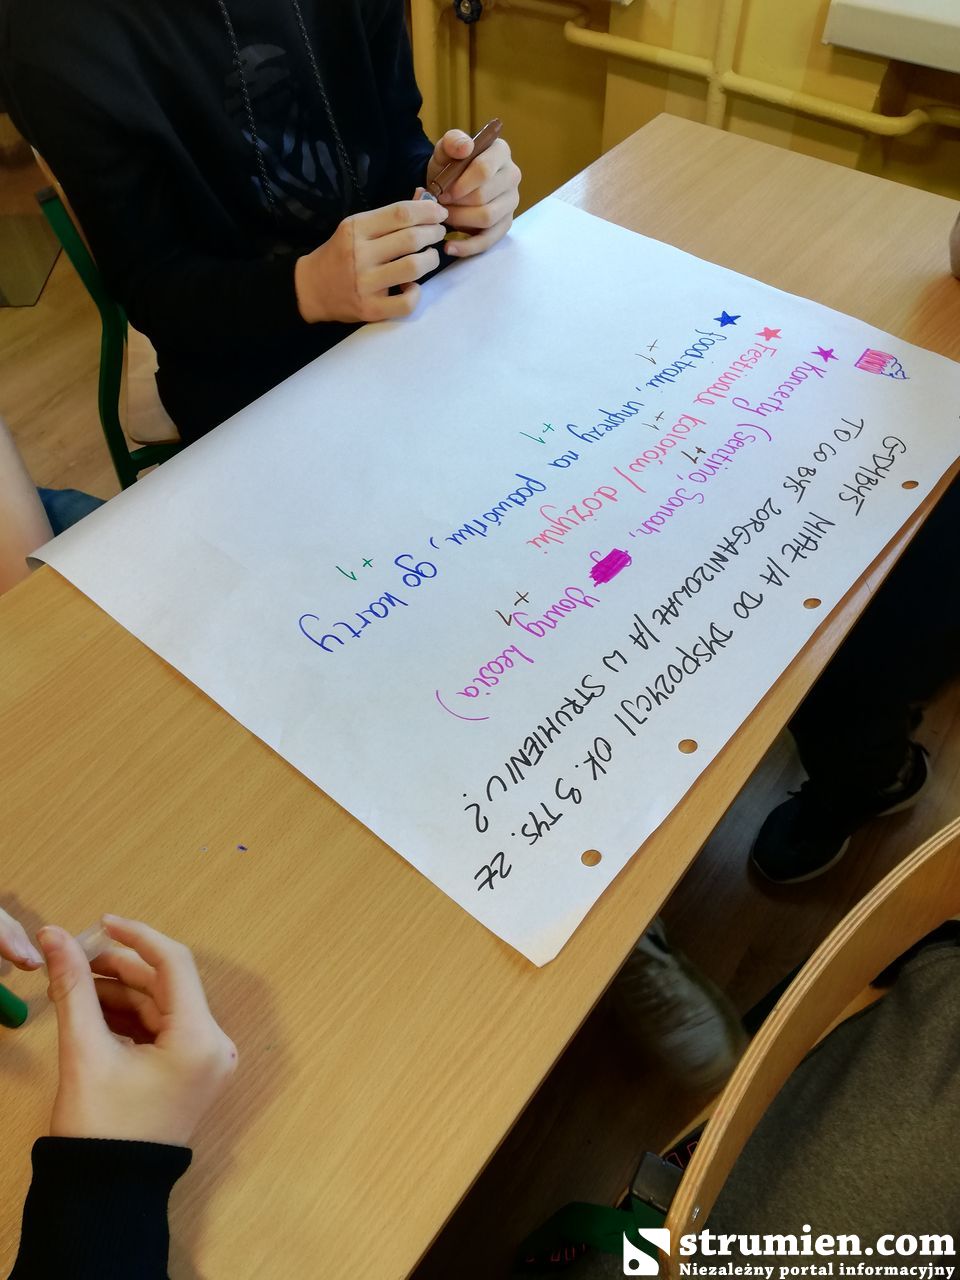 GDYBYŚ MIAŁ/A DO DYSPOZYCJI OK. 3 TYS. ZŁ
TO CO BYŚ ZORGANIZOWAŁ/A W STRUMIENIU?
★ Koncerty (Sentino, Sanah, Young Leosia)
+1 +1
★ Festiwale kolorów/ dożynki
+1
★ food traki, imprezy na podwórku, go karty
+1 +1 +1
strumien.com
Niezależny portal informacyjny